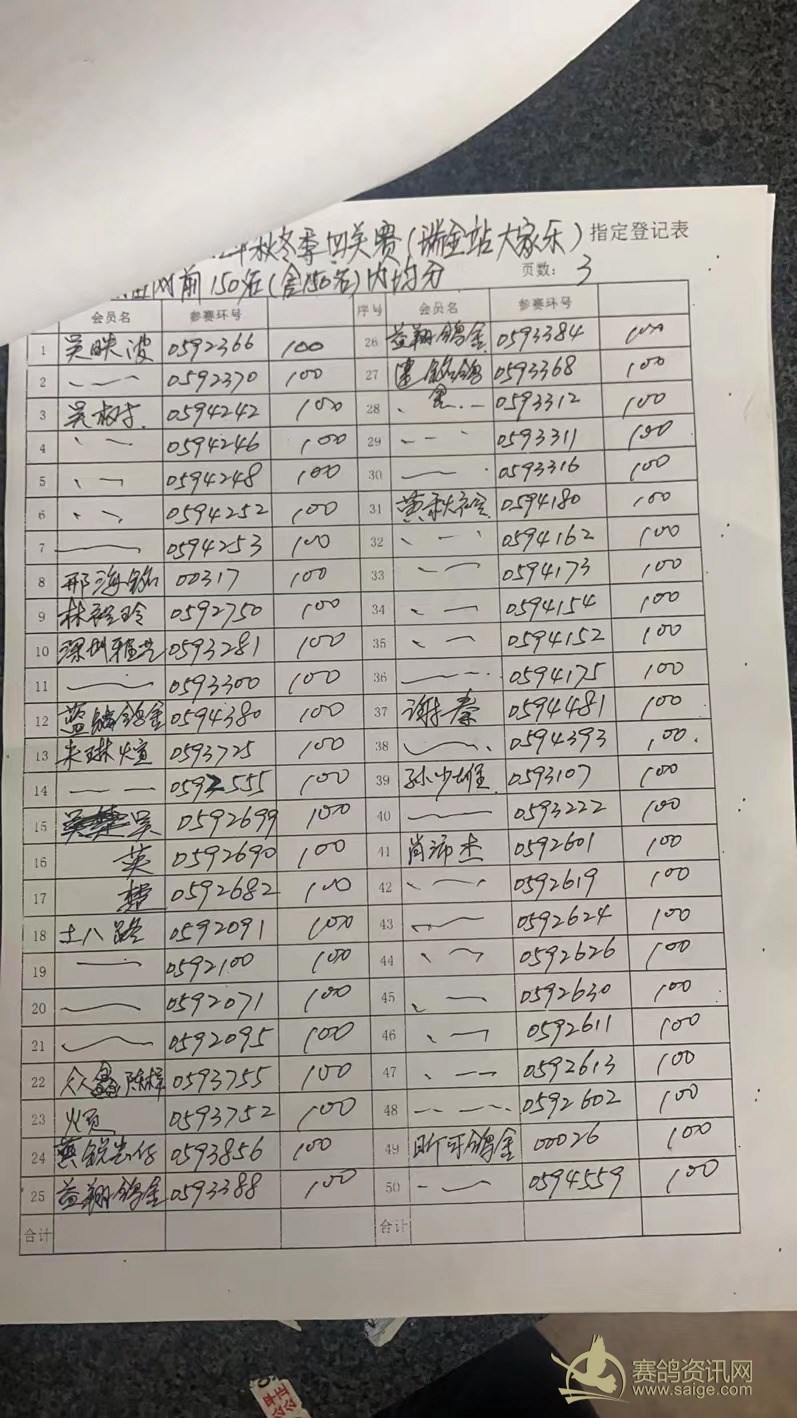 年秋冬季四关赛(瑞金站大家乐)指定登记表
网前150名(含150名)内均分 页数: 3
会员名 参赛环号 序号 会员名 参赛环号
1 吴映波 0592366 100 26 益翔鸽舍 0593384 100
2 0592370 100 27 鸽 0593368 100
3 吴 0594242 100 28 0593312 100
4 0594246 100 29 0593311 100
5 0594248 100 30 0593316 100
6 0594252 100 31 黄秋 0594180 100
7 0594253 100 32 0594162 100
8 邢海铭 00317 100 33 0594173 100
9 林 玲 0592750 100 34 0594154 100
10 深圳 0593281 100 35 0594152 100
11 0593300 100 36 0594175 100
12 鸽舍 0594380 100 37 谢秦 0594481 100
13 朱琳煊 0593725 100 38 0594393 100
14 0592555 100 39 孙少雄 0593107 100
15 吴 0592699 100 40 0593222 100
16 英 0592690 100 41 肖沛杰 0592601 100
17 楚 0592682 100 42 0592619 100
18 土八路 0592091 100 43 0592624 100
19 0592100 100 44 0592626 100
20 0592071 100 45 0592630 100
21 0592095 100 46 0592611 100
22 众鑫 陈梓 0593755 100 47 0592613 100
23 0593752 100 48 0592602 100
24 0593856 100 49 昕可鸽舍 00026 100
25 益翔鸽舍 0593388 100 50 0594559 100
合计 合计
赛鸽资讯网
www.saige.com